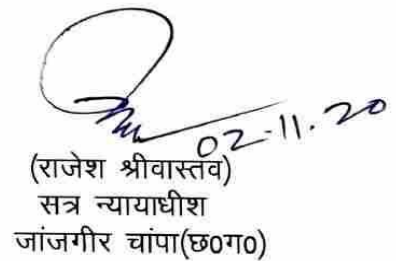 02-11-20
(राजेश श्रीवास्तव)
सत्र न्यायाधीश
जांजगीर चांपा(छ0ग0)